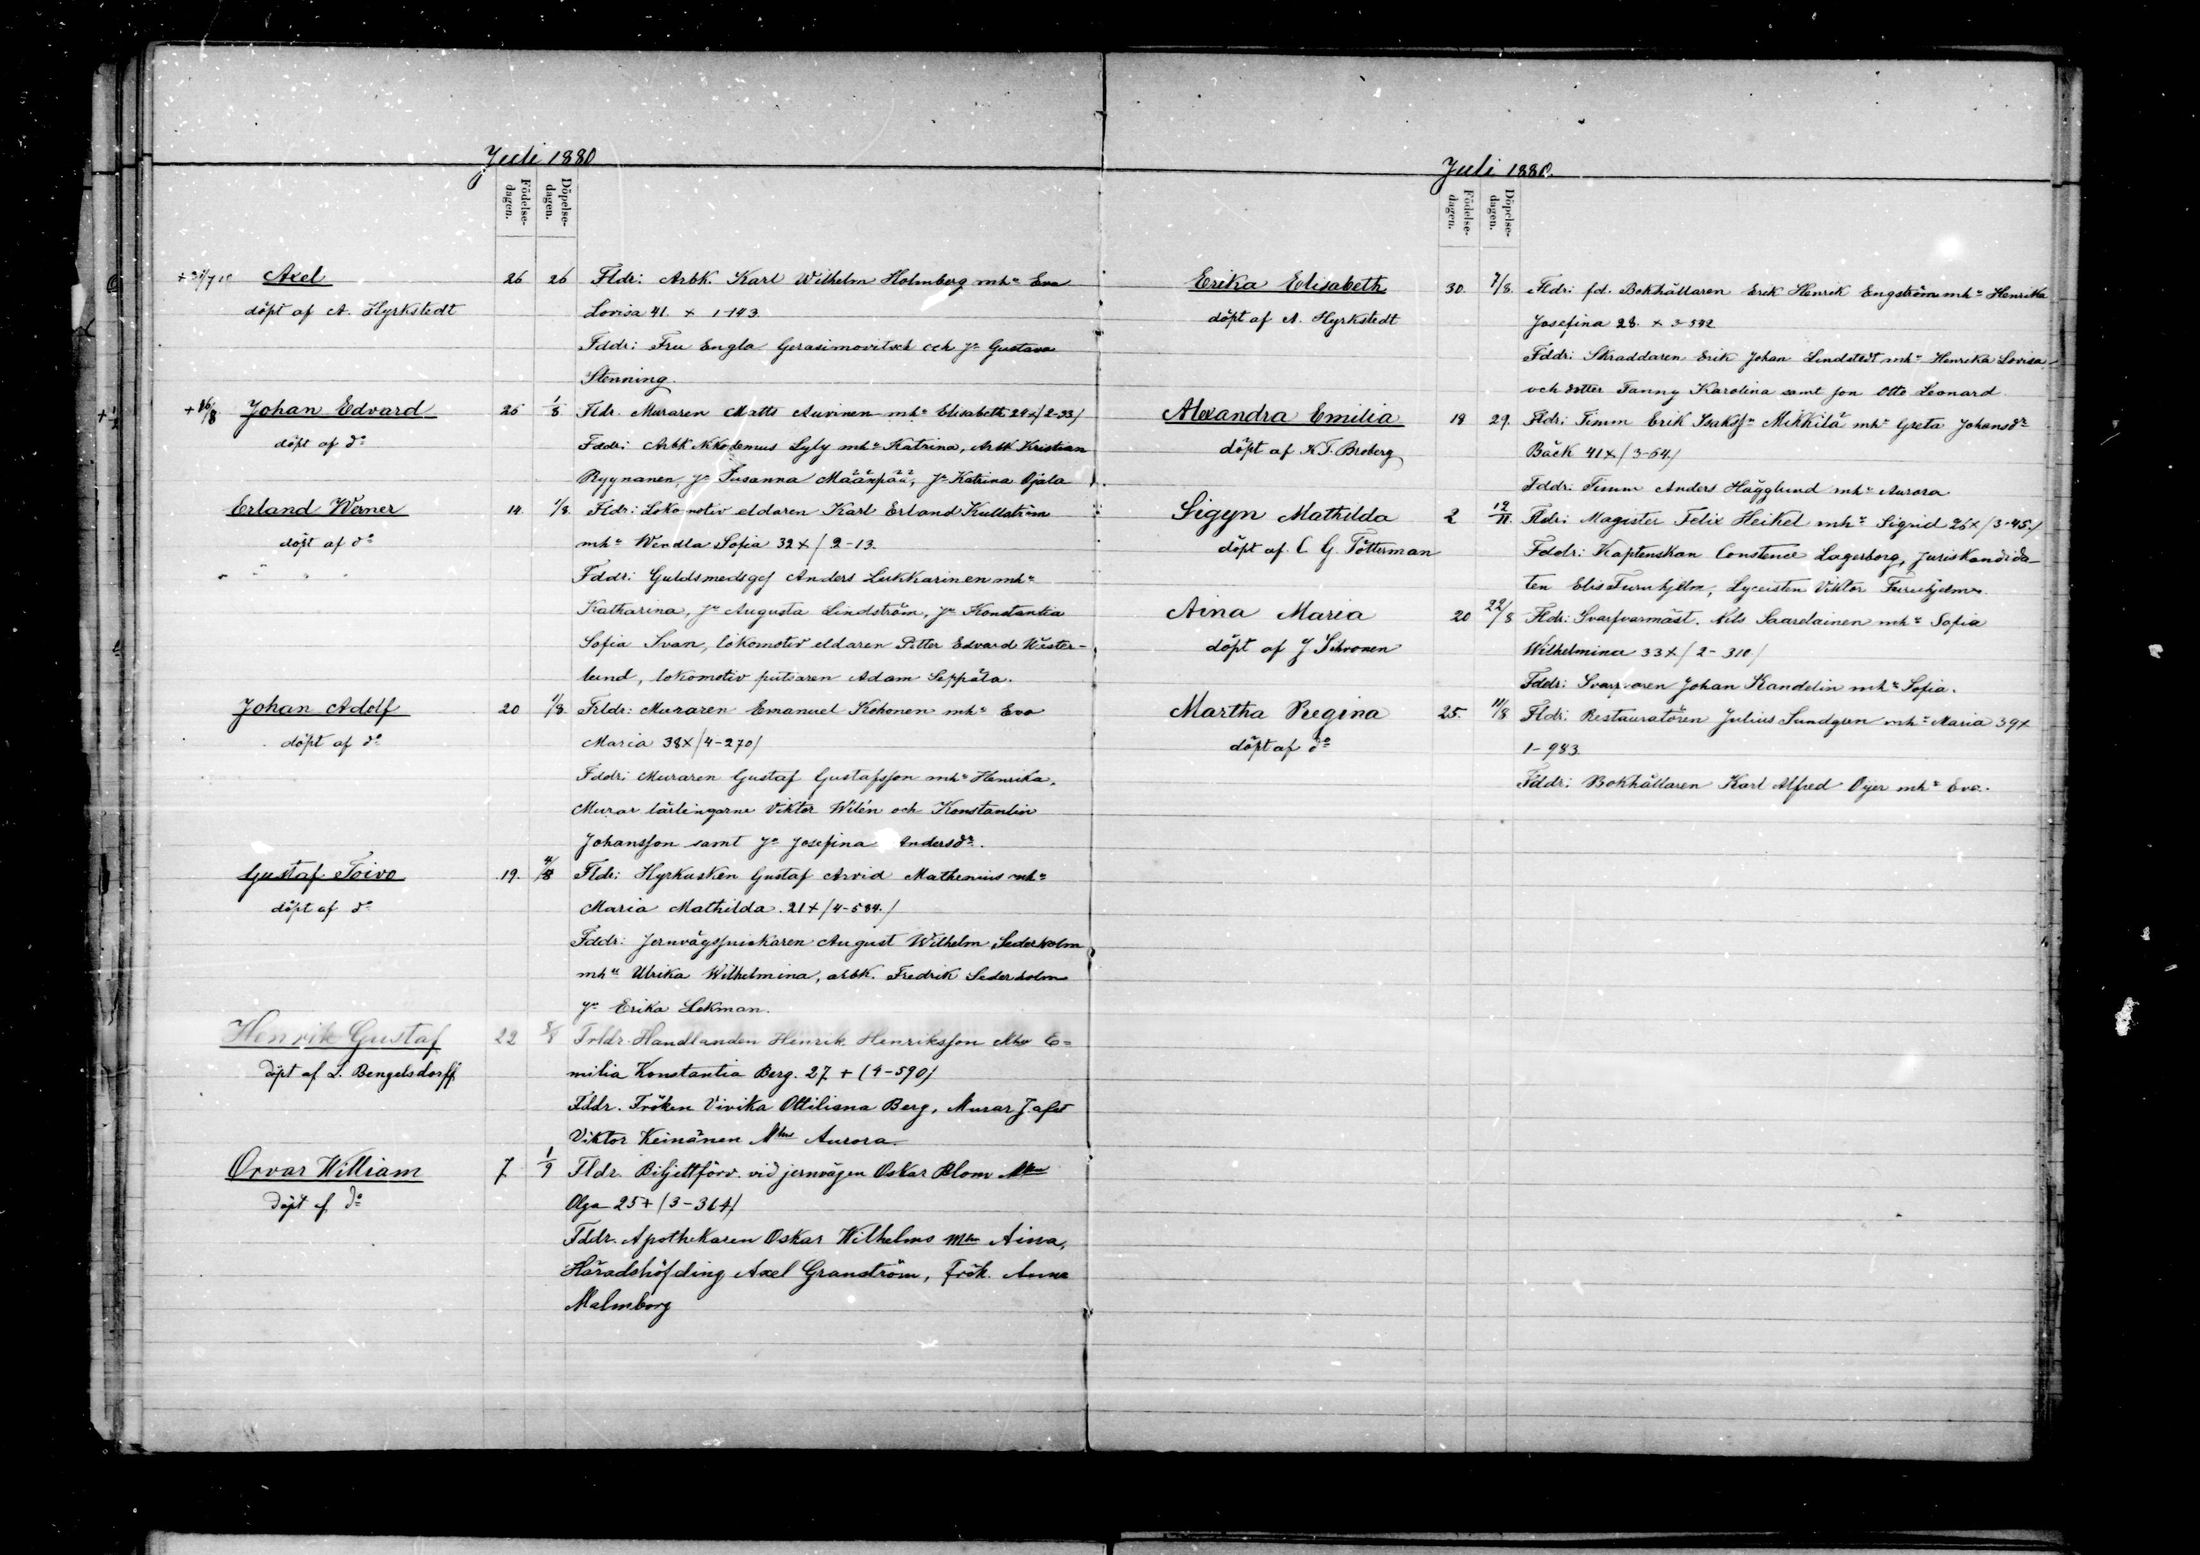 Juli 1880
Födelse-dagen.
Döpelse-dagen.
Axel 26 26 Fldr: Arbk. Karl Wilhelm Holmberg mhu Eva
döpt af A. Hyrkstedt Lovisa 41. x 1-143.
Fddr: Fru Engla Gerasimovitsch och jn Gustava
Stenning.
+ 16/8 Johan Edvard 25 1/8 Fldr. Muraren Matts Auvinen mhu Elisabeth 24x/2-93/
döpt af do Fddr: Arbk Nikodemus Lyly mhu Katrina, Arbk Kristian
Ryynanen, jn Susanna Määnpää, jn Katrina Ojala
Erland Werner 14. 1/8. Fldr: Lokomotiv eldaren Karl Erland Kullström
döpt af do mhu Wendla Sofia 32x/2-13.
Fddr: Guldsmedsges Anders Liukkarinen mhu
Katharina, jn Augusta Lindström, jn Konstantia
Sofia Svan, lokomotiv eldaren Petter Edvard Wester-
lund, lokomotiv putsaren Adam Seppälä.
Johan Adolf 20 1/8. Frldr: Muraren Emanuel Kohonen mhu Eva
döpt af do Maria 38x/4-270/
Fddr: Muraren Gustaf Gustafsson mhu Henrika,
Murar lärlingarne Viktor Wilén och Konstantin
Johansson samt jn Josefina Andersdr.
Gustaf Toivo 19. 4/8 Fldr: Hyrkusken Gustaf Arvid Mathenius mhu
döpt af do Maria Mathilda. 21x/4-584./
Fddr: Jernvägssnickaren August Wilhelm Sederholm
mhu Ulrika Wilhelmina, arbk. Fredrik Sederholm
jn Erika Lekman.
Henrik Gustaf 22 8/8 Frldr. Handlanden Henrik Henriksson Mhu E=
döpt af L. Bengelsdorff milia Konstantia Berg. 27 + (4-590/
Fddr. Fröken Vivika Ottiliana Berg, Murar Jafet
Viktor Keinänen Mhu Aurora
Orvar William 7. 1/9 Fldr. Biljettförv. vid jernvägen Oskar Blom Mhu
döpt af do Olga 25+/3-364/
Fddr. Apothekaren Oskar Wilhelms Mhu Aina,
Häradshöfding Axel Granström, frök. Anna
Malmborg
Juli 1880.
Födelse-dagen.
Döpelse-dagen.
Erika Elisabeth 30. 7/8. Fldr: fd. Bokhållaren Erik Henrik Engström mhu Henrika
döpt af A. Hyrkstedt Josefina 28. x 3-592
Fddr: Skräddaren Erik Johan Lindstedt mhu Henrika Lovisa
och dotter Fanny Karolina samt son Otto Leonard.
Alexandra Emilia 18 29. Fldr: Timm Erik Isakssn Mikkilä mhu Greta Johansdr
döpt af K F. Broberg Bäck 41x/3-64/
Fddr: Timm Anders Hägglund mhu Aurora
Sigyn Mathilda 2 12/11. Fldr: Magister Felix Heikel mhu Sigrid 26x/3-45./
döpt af C G. Tötterman Fddr: Kaptenskan Constence Lagerborg, Juriskandida-
ten Elis Furuhjelm, Lyceisten Viktor Furuhjelm.
Aina Maria 20 22/8 Fldr: Svarfvarmäst. Nils Saarelainen mhu Sofia
döpt af J Schronen Wilhelmina 33x/2-310/
Fddr: Svarfvaren Johan Kandelin mhu Sofia.
Martha Regina 25. 11/8 Fldr: Restauratören Julius Sundgren mhu Maria 39x
döpt af do 1-983.
Fddr: Bokhållaren Karl Alfred Öyer mhu Eva.